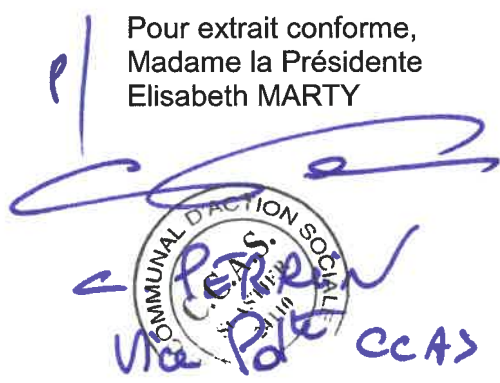 Pour extrait conforme,
Madame la Présidente
Elisabeth MARTY
P/
COMMUNAL D'ACTION SOCIALE
C.C.A.S.
C PERRIN
Vice Pdte CCAS